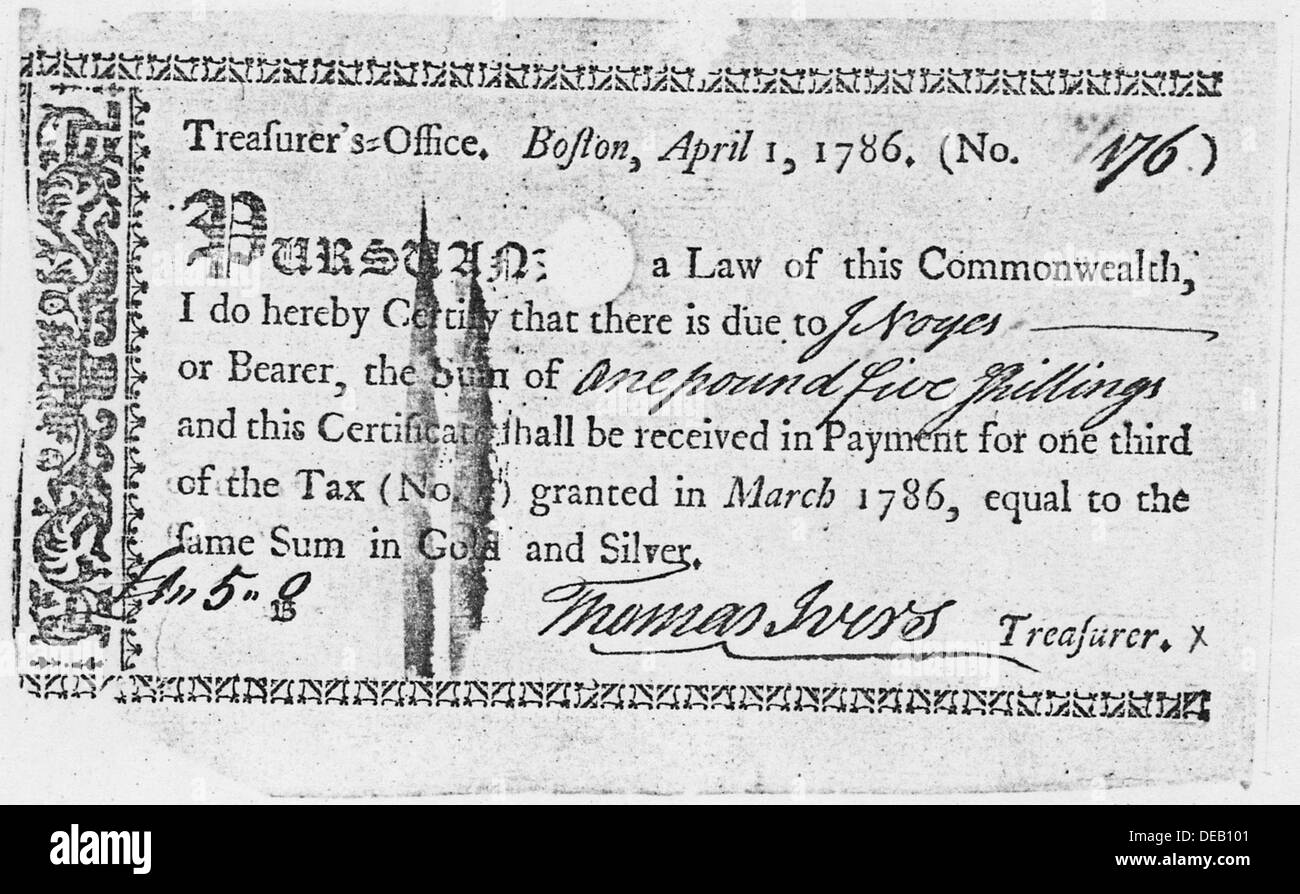 Treaſurer's-Office. Boſton, April 1, 1786. (No. 176.)
PURSUAN a Law of this Commonwealth,
I do hereby Certify that there is due to J Noyes
or Bearer, the Sum of One pound five Shillings
and this Certificate ſhall be received in Payment for one third
of the Tax (No. ) granted in March 1786, equal to the
ſame Sum in Gold and Silver.
5 " 0
Thomas Ivers Treaſurer. x
alamy
www.alamy.com
Image ID: DEB101